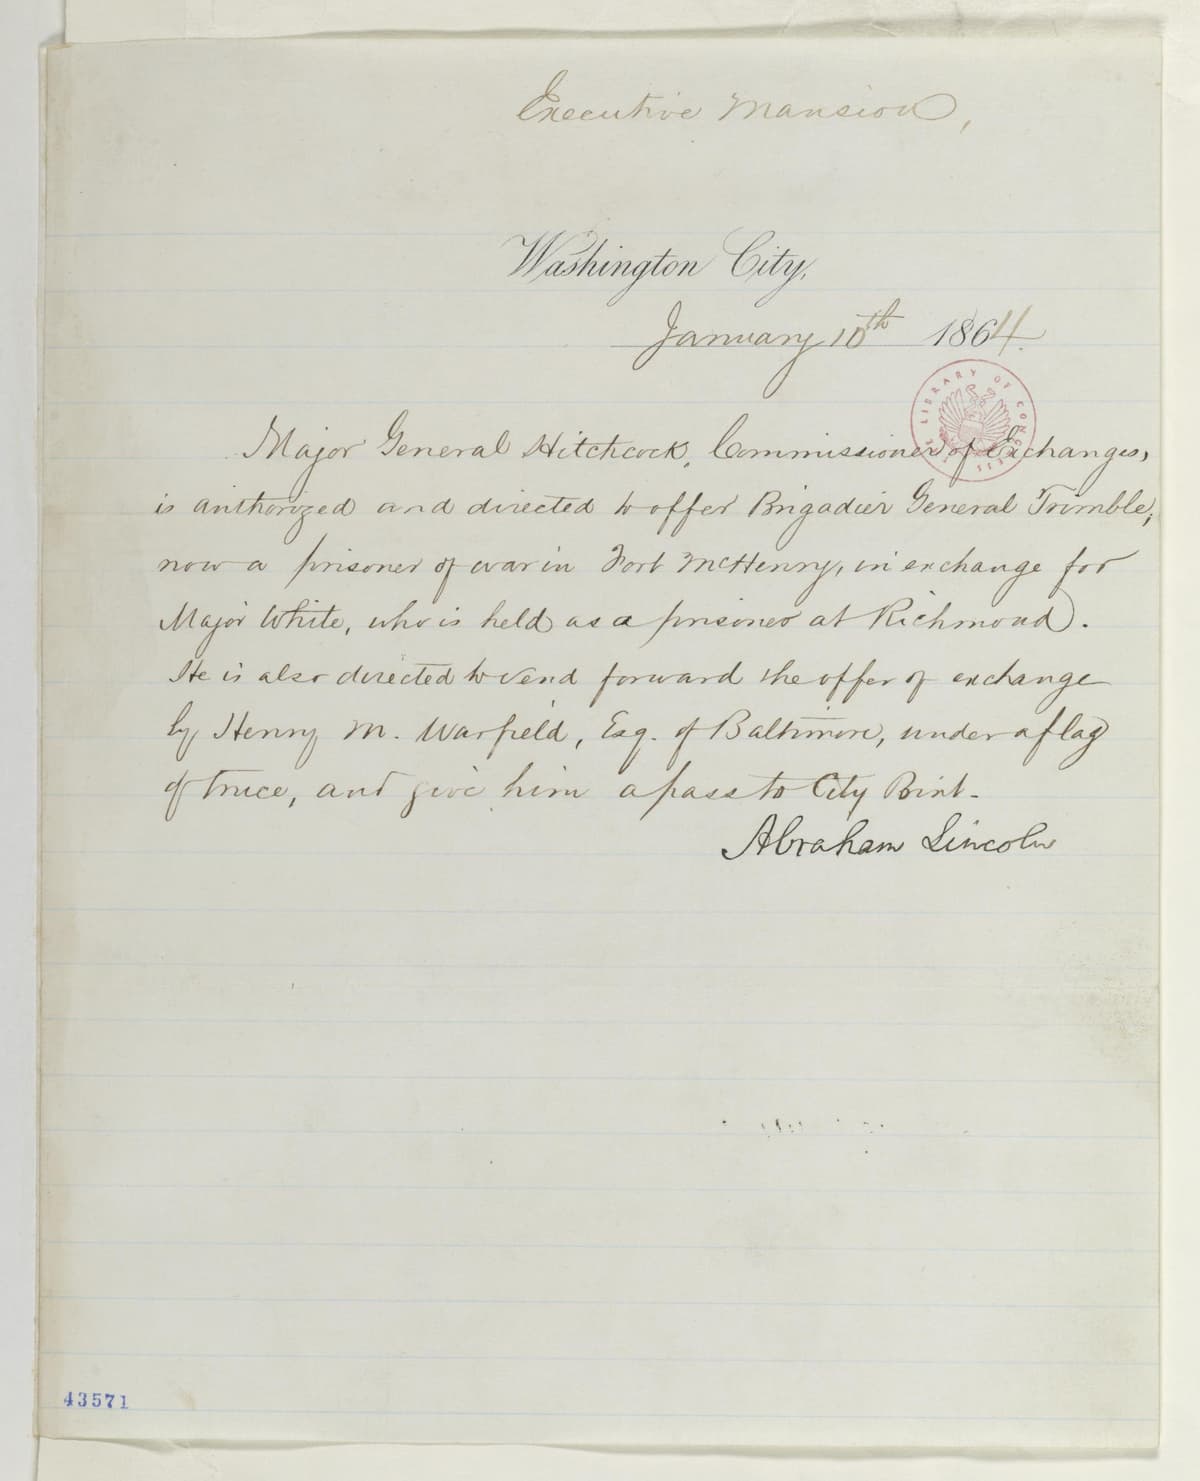 Executive Mansion,
Washington City,
January 10th 1864.
THE LIBRARY OF CONGRESS
Major General Hitchcock, Commissioner of Exchanges,
is authorized and directed to offer Brigadier General Trimble,
now a prisoner of war in Fort McHenry, in exchange for
Major White, who is held as a prisoner at Richmond.
He is also directed to send forward the offer of exchange
by Henry M. Warfield, Esq. of Baltimore, under a flag
of truce, and give him a pass to City Point.
Abraham Lincoln
43571